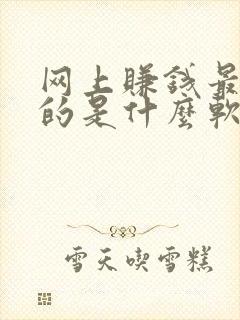 网上赚钱最
的是什麼軟
雪天喫雪糕